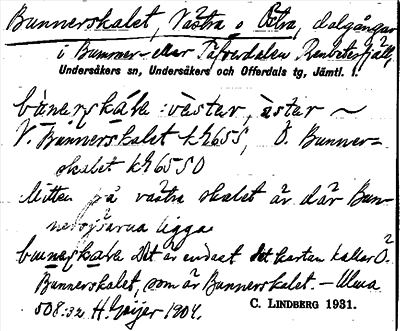 Bunnerskalet, Västra o Östra, dalgångar
i Bunner- eller Täfverdalen Renbetesfjäll,
Undersåkers sn, Undersåkers och Offerdals tg, Jämtl. l.
: väster, öster ~
V. Bunnerskalet k 6655, Ö. Bunner-
skalet k 6550
Mitten på västra skalet är där Bun-
nersjöarna ligga
Det är endast det kartan kallar Ö.
Bunnerskalet, som är Bunnerskalet. – Ulma
508:32 H. Geijer 1909.
C. LINDBERG 1931.